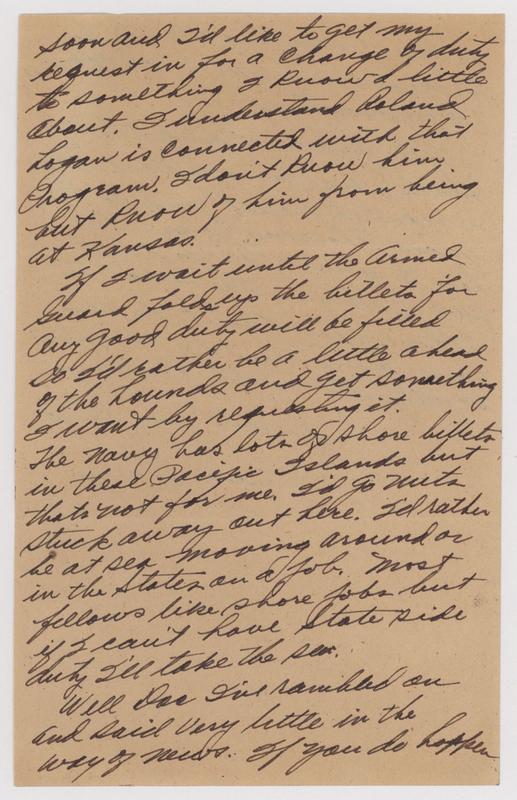 soon and I'd like to get my
request in for a change of duty
to something I know a little
about. I understand Roland
Logan is connected with that
Program. I don't know him
but know of him from being
at Kansas.
If I wait until the Armed
Guard folds up the billets for
any good duty will be filled
so I'd rather be a little ahead
of the hounds and get something
I want by requesting it.
The Navy has lots of shore billets
in these Pacific Islands but
thats not for me. I'd go nuts
stuck away out here. I'd rather
be at sea moving around or
in the States on a job. Most
fellows like shore jobs but
if I can't have State side
duty I'll take the sea.
Well Doc I've rambled on
and said very little in the
way of news. If you do happen